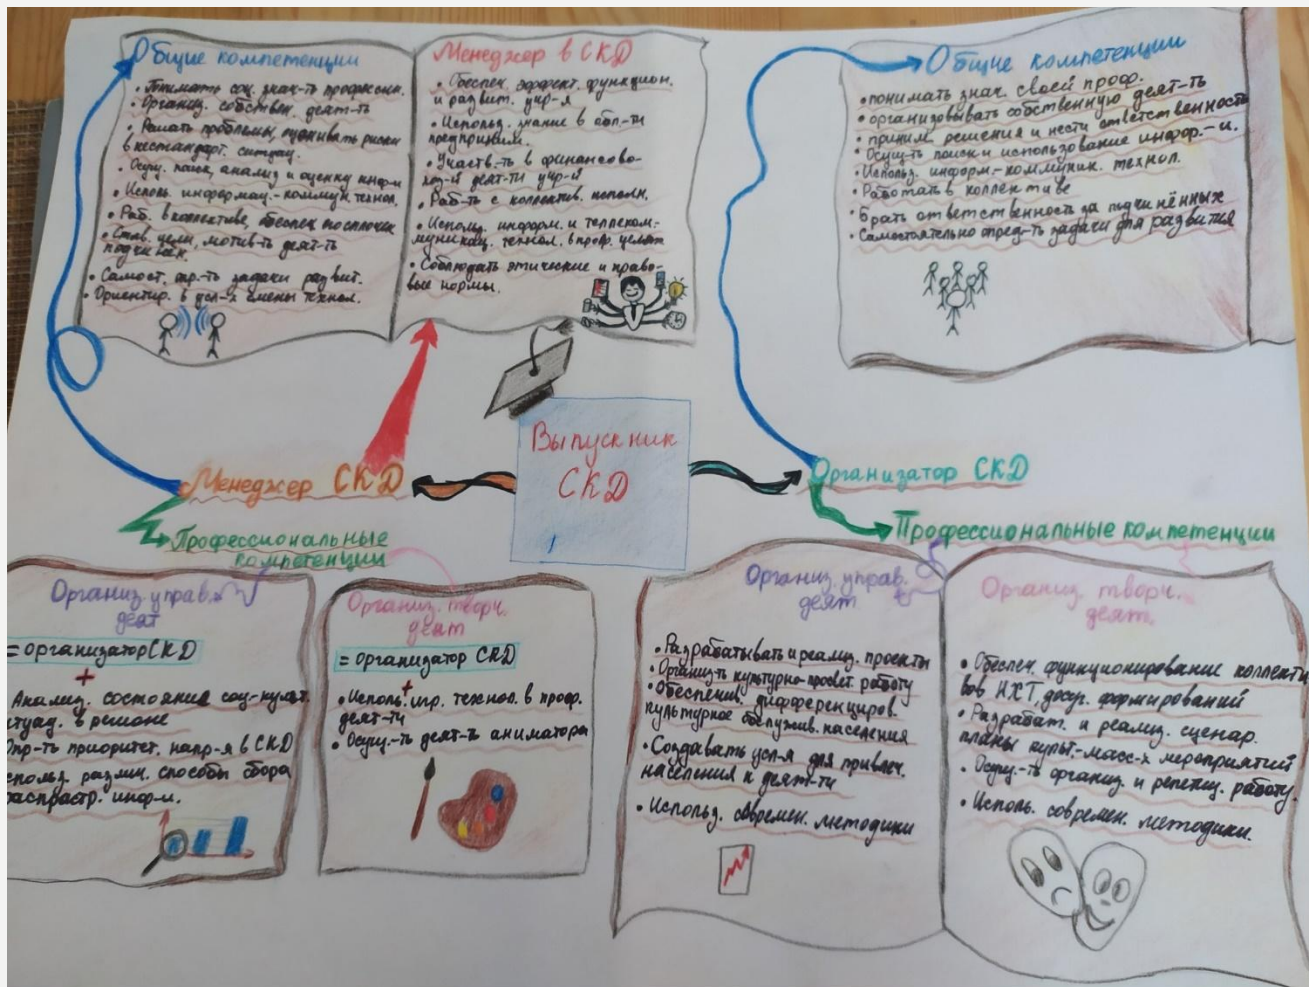 Общие компетенции
• Понимать соц. знач-ть професии.
• Организ. собствен. деят-ть
• Решать проблемы, оценивать риски
в нестандарт. ситуац.
• Осущ. поиск, анализ и оценку инф-и
• Исполь. информац.-коммун. технол.
• Раб. в коллективе, обеспеч. его сплочен
• Став. цели, мотив-ть деят-ть
подчинен.
• Самост. опр-ть задачи развит.
• Ориентир. в усл-х смены технол.
Менеджер в СКД
• Обеспеч. эффект. функцион.
и развит. учр-я
• Использ. знание в обл-ти
предприним.
• Участв-ть в финансово-
хоз-й деят-ти учр-й
• Раб-ть с коллектив. исполн.
• Использ. информ. и телеком-
муникац. технол. в проф. целях
• Соблюдать этические и право-
вые нормы.
Общие компетенции
• понимать знач. своей проф.
• организовывать собственную деят-ть
• приним. решения и нести ответственность
• Осущ-ть поиск и использование инфор.-и.
• Использ. информ.-коммуник. технол.
• Работать в коллективе
• Брать ответственность за подчинённых
• Самостоятельно опред-ть задачи для развития
Выпускник
СКД
Менеджер СКД
Организатор СКД
Профессиональные
компетенции
Профессиональные компетенции
Организ. управ.
деят
= организатор СКД
+
Анализ. состояние соц-культ.
ситуац. в регионе
Опр-ть приоритет. напр-я в СКД
использ. различ. способы сбора
распростр. инф-и.
Организ. творч.
деят
= организатор СКД
+
• Исполь. игр. технол. в проф.
деят-ти
• Осущ.-ть деят-ть аниматора
Организ. управ.
деят
• Разрабатывать и реализ. проекты
• Организ-ть культурно-просвет. работу
• Обеспечив. дифференциров.
культурное обслужив. населения
• Создавать усл-я для привлеч.
населения к деят-ти
• Использ. современ. методики
Организ. творч.
деят.
• Обеспеч. функционирование коллекти
вов НХТ, досуг. формирований
• Разработ. и реализ. сценар.
планы культ-масс-х мероприятий
• Осущ.-ть организ. и репетиц. работу.
• Исполь. современ. методики.